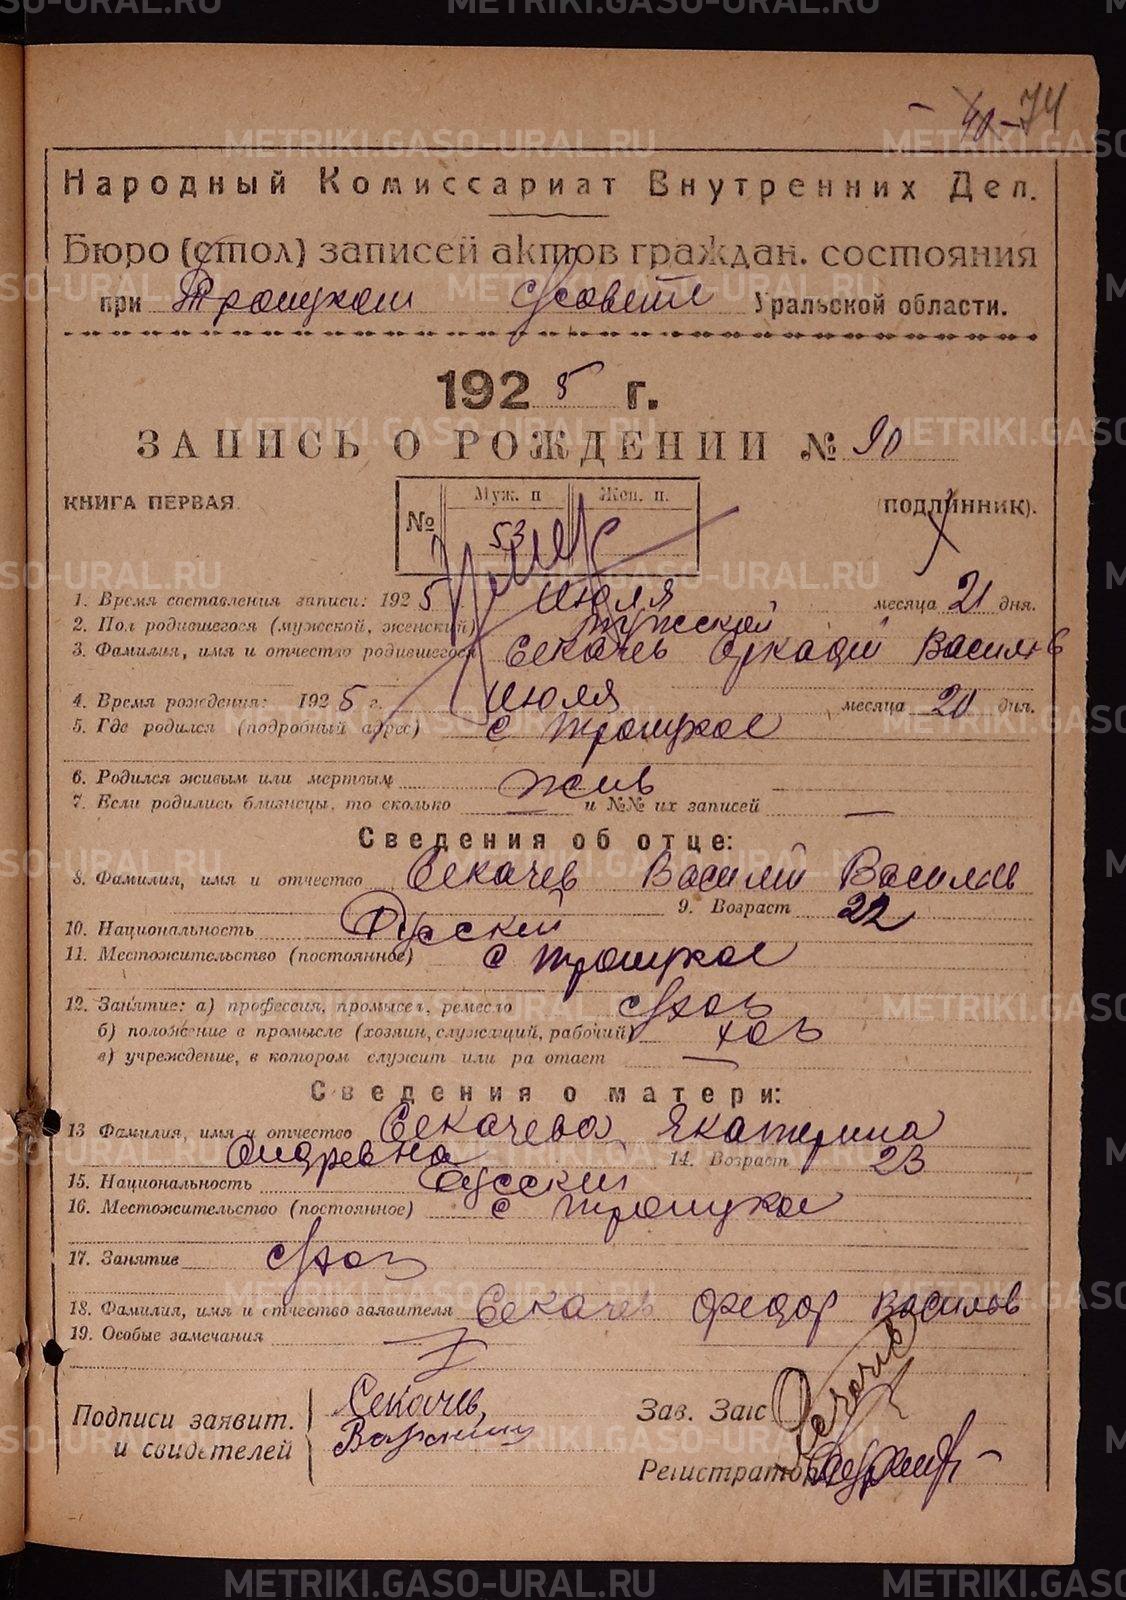 40 - 74
Народный Комиссариат Внутренних Дел.
Бюро (стол) записей актов граждан. состояния
при Троицком с/совете Уральской области.
1925 г.
ЗАПИСЬ О РОЖДЕНИИ № 90
КНИГА ПЕРВАЯ. (ПОДЛИННИК).
№ Муж. п Жен. п.
53
1. Время составления записи: 1925 Июля месяца 21 дня.
2. Пол родившегося (мужской, женский) Мужской
3. Фамилия, имя и отчество родившегося Секачев Аркадий Васильев
4. Время рождения: 1925 г. Июля месяца 20 дня.
5. Где родился (подробный адрес) с Троицкое
6. Родился живым или мертвым Жив
7. Если родились близнецы, то сколько — и №№ их записей —
Сведения об отце:
8. Фамилия, имя и отчество Секачев Василий Васильев
9. Возраст 22
10. Национальность Русский
11. Местожительство (постоянное) с Троицкое
12. Занятие: а) профессия, промысел, ремесло с/хоз
б) положение в промысле (хозяин, служащий, рабочий) хоз
в) учреждение, в котором служит или ра отает —
Сведения о матери:
13 Фамилия, имя и отчество Секачева Екатерина
Андревна 14. Возраст 23
15. Национальность Русский
16. Местожительство (постоянное) с Троицкое
17. Занятие с/хоз
18. Фамилия, имя и отчество заявителя Секачев Федор Васильев
19. Особые замечания
Подписи заявит. Секачев Зав. Загс
и свидетелей Регистратор
METRIKI.GASO-URAL.RU